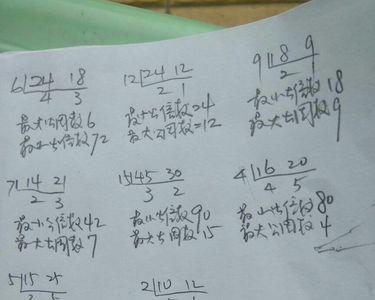 6 24 18
4 3
最大公因数 6
最小公倍数 72
12 24 12
2 1
最小公倍数 24
最大公因数=12
9 18 9
2
最小公倍数 18
最大公因数 9
7 14 21
2 3
最小公倍数 42
最大公因数 7
15 45 30
3 2
最小公倍数 90
最大公因数 15
4 16 20
4 5
最小公倍数 80
最大公因数 4
5 15 25
2 10 12